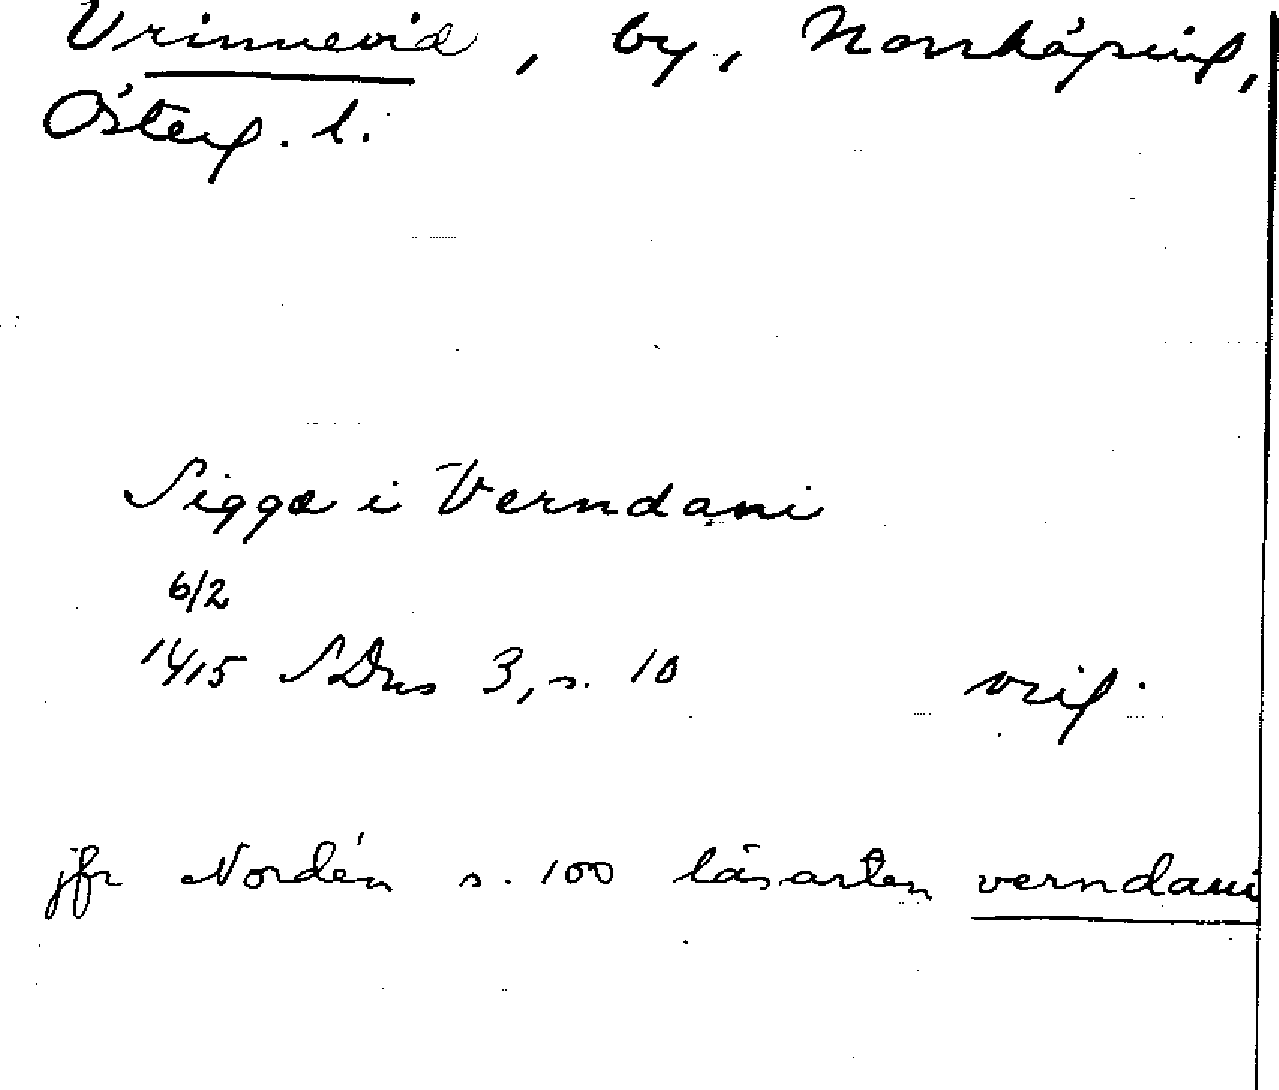 Vrinnevid, by, Norrköping,
Österg. l.
Sigge i Verndani
6/2
1415 SDns 3, s. 10 orig.
jfr Nordén s. 100 läsarten verndani